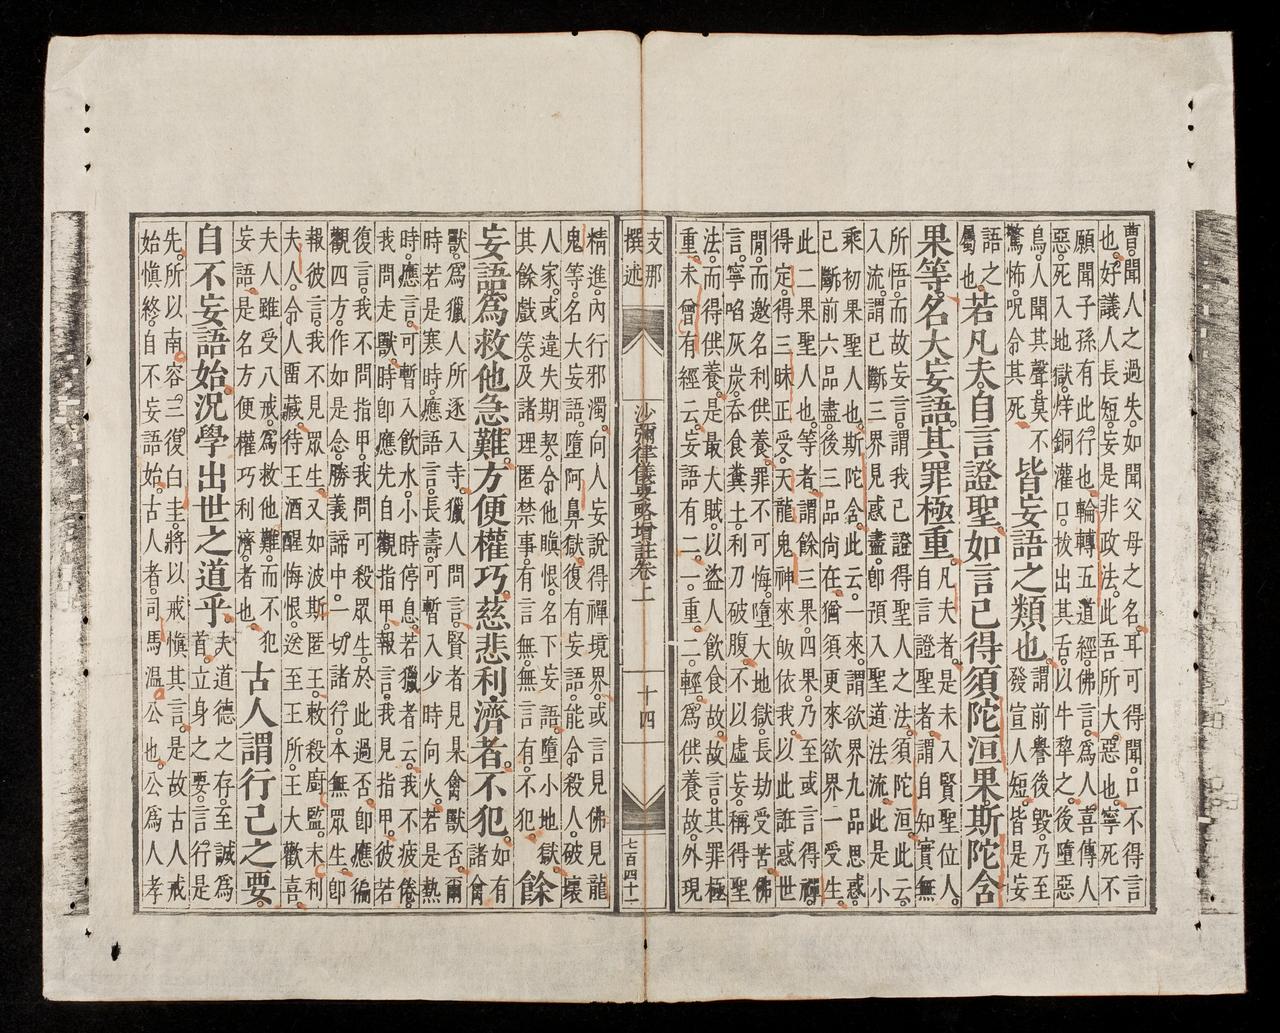 曹。聞人之過失。如聞父母之名。耳可得聞。口不得言
也。好議人長短。妄是非政法。此吾所大惡也。寧死不
願聞子孫有此行也。輪轉五道經。佛言。為人喜傳人
惡。死入地獄。烊銅灌口。拔出其舌。以牛犁之。後墮惡
鳥。人聞其聲。莫不
驚怖。呪令其死。
皆妄語之類也。
謂前譽後毀。乃至
發宣人短。皆是妄
語之
屬也。
若凡夫。自言證聖。如言已得須陀洹果。斯陀含
果等。名大妄語。其罪極重。
凡夫者。是未入賢聖位人。
自言證聖者。謂自知實無
所悟。而故妄言。謂我已證得聖人之法。須陀洹。此云。
入流。謂已斷三界見惑盡。卽預入聖道法流。此是小
乘初果聖人也。斯陀含。此云。一來。謂欲界九品思惑。
已斷前六品盡。後三品尚在。猶須更來欲界一受生。
此二果聖人也。等者。謂餘三果。四果。乃至或言得禪。
得定。得三昧正受。天龍鬼神來皈依我。以此誑惑世
閒。而邀名利供養。罪不可悔。墮大地獄。長劫受苦。佛
言。寧啗灰炭。吞食糞土。利刀破腹。不以虛妄。稱得聖
法。而得供養。是最大賊。以盜人飲食故。故言。其罪極
重。未曾有經云。妄語有二。一。重。二。輕。為供養故。外現
支那
撰述
沙彌律儀要略增註卷上
十四
七百四十一
精進。內行邪濁。向人妄說得禪境界。或言見佛見龍
鬼等。名大妄語。墮阿鼻獄。復有妄語。能令殺人。破壞
人家。或違失期契。令他瞋恨。名下妄語。墮小地獄。
其餘戲笑。及諸理匿禁事。有言無。無言有。不犯。
餘
妄語。為救他急難。方便權巧。慈悲利濟者。不犯。
如有
諸禽
獸。為獵人所逐入寺。獵人問言。賢者見某禽獸否。爾
時若是寒時。應語言。長壽。可暫入少時向火。若是熱
時。應言。可暫入飲水。小時停息。若獵者云。我不疲倦。
我問走獸。時卽應先自觀指甲。報言。我見指甲。彼若
復言。我不問指甲。我問可殺眾生。於此過否。卽應徧
觀四方。作如是念。勝義諦中。一切諸行。本無眾生。卽
報彼言。我不見眾生。又如波斯匿王。敕殺廚監。末利
夫人。令人畱藏。待王酒醒悔恨。送至王所。王大歡喜。
夫人雖受八戒。為救他難。而不犯
妄語。是名方便權巧利濟者也。
古人謂行己之要。
自不妄語始。況學出世之道乎。
夫道德之存。至誠為
首。立身之要。言行是
先。所以南容。三復白圭。將以戒慎其言。是故古人戒
始慎終。自不妄語始。古人者。司馬溫公也。公為人孝